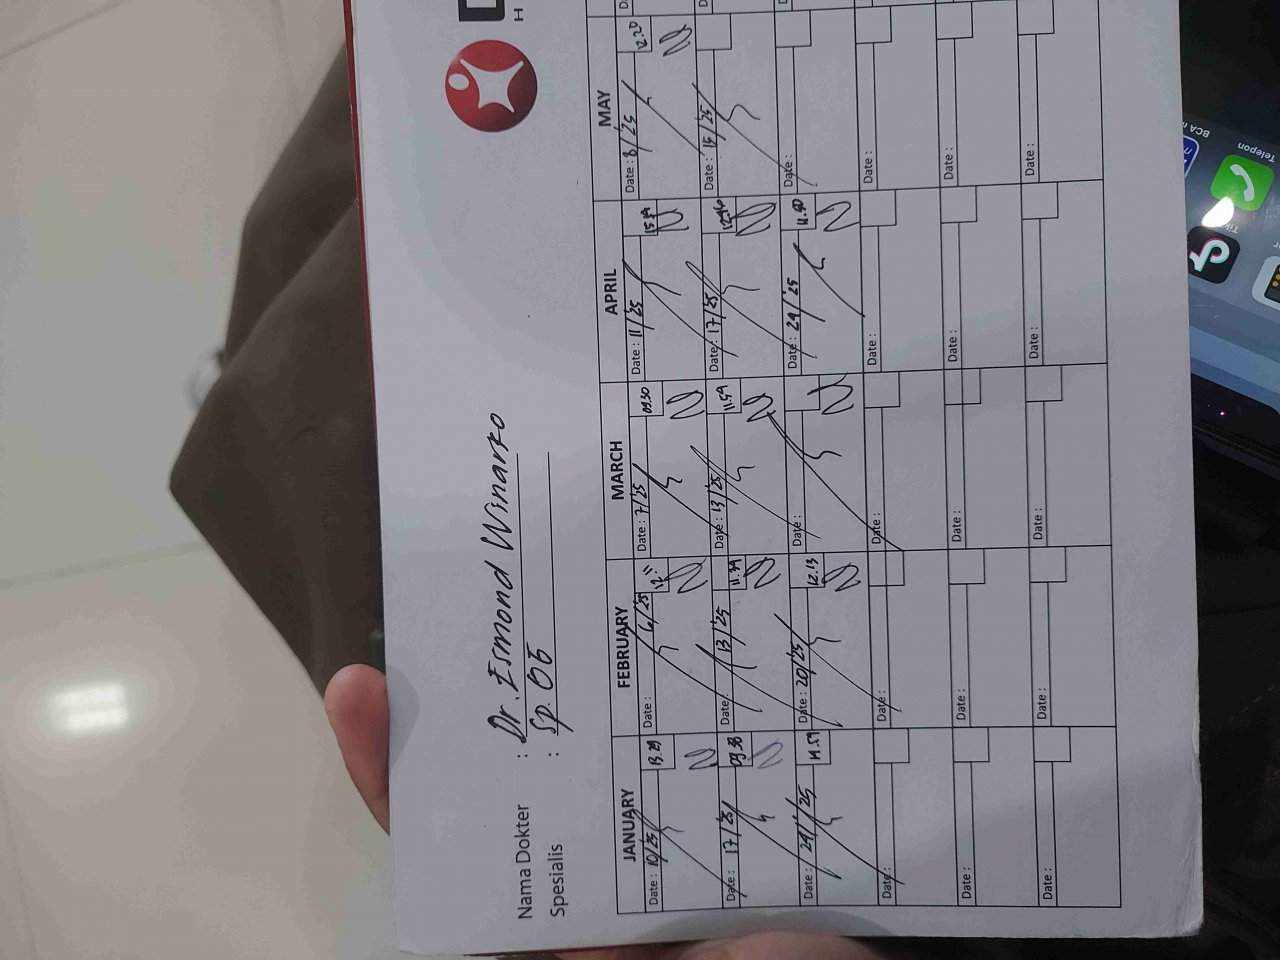 Nama Dokter : Dr. Esmond Winarto
Spesialis : Sp. OG
JANUARY FEBRUARY MARCH APRIL MAY
Date : 10/25 13.29 Date : 6/25 12 11 Date : 7/25 09.30 Date : 11/25 Date : 8/25 12.20
Date : 17/25 09.38 Date : 13/25 11.39 Date : 13/25 11.59 Date : 17/25 Date : 15/25
Date : 12.13 Date : 20/25 Date : Date : 24/25 11.40 Date :
Date : Date : Date : Date : Date :
Date : Date : Date : Date : Date :
Date : Date : Date : Date : Date :
BCA
Telepon